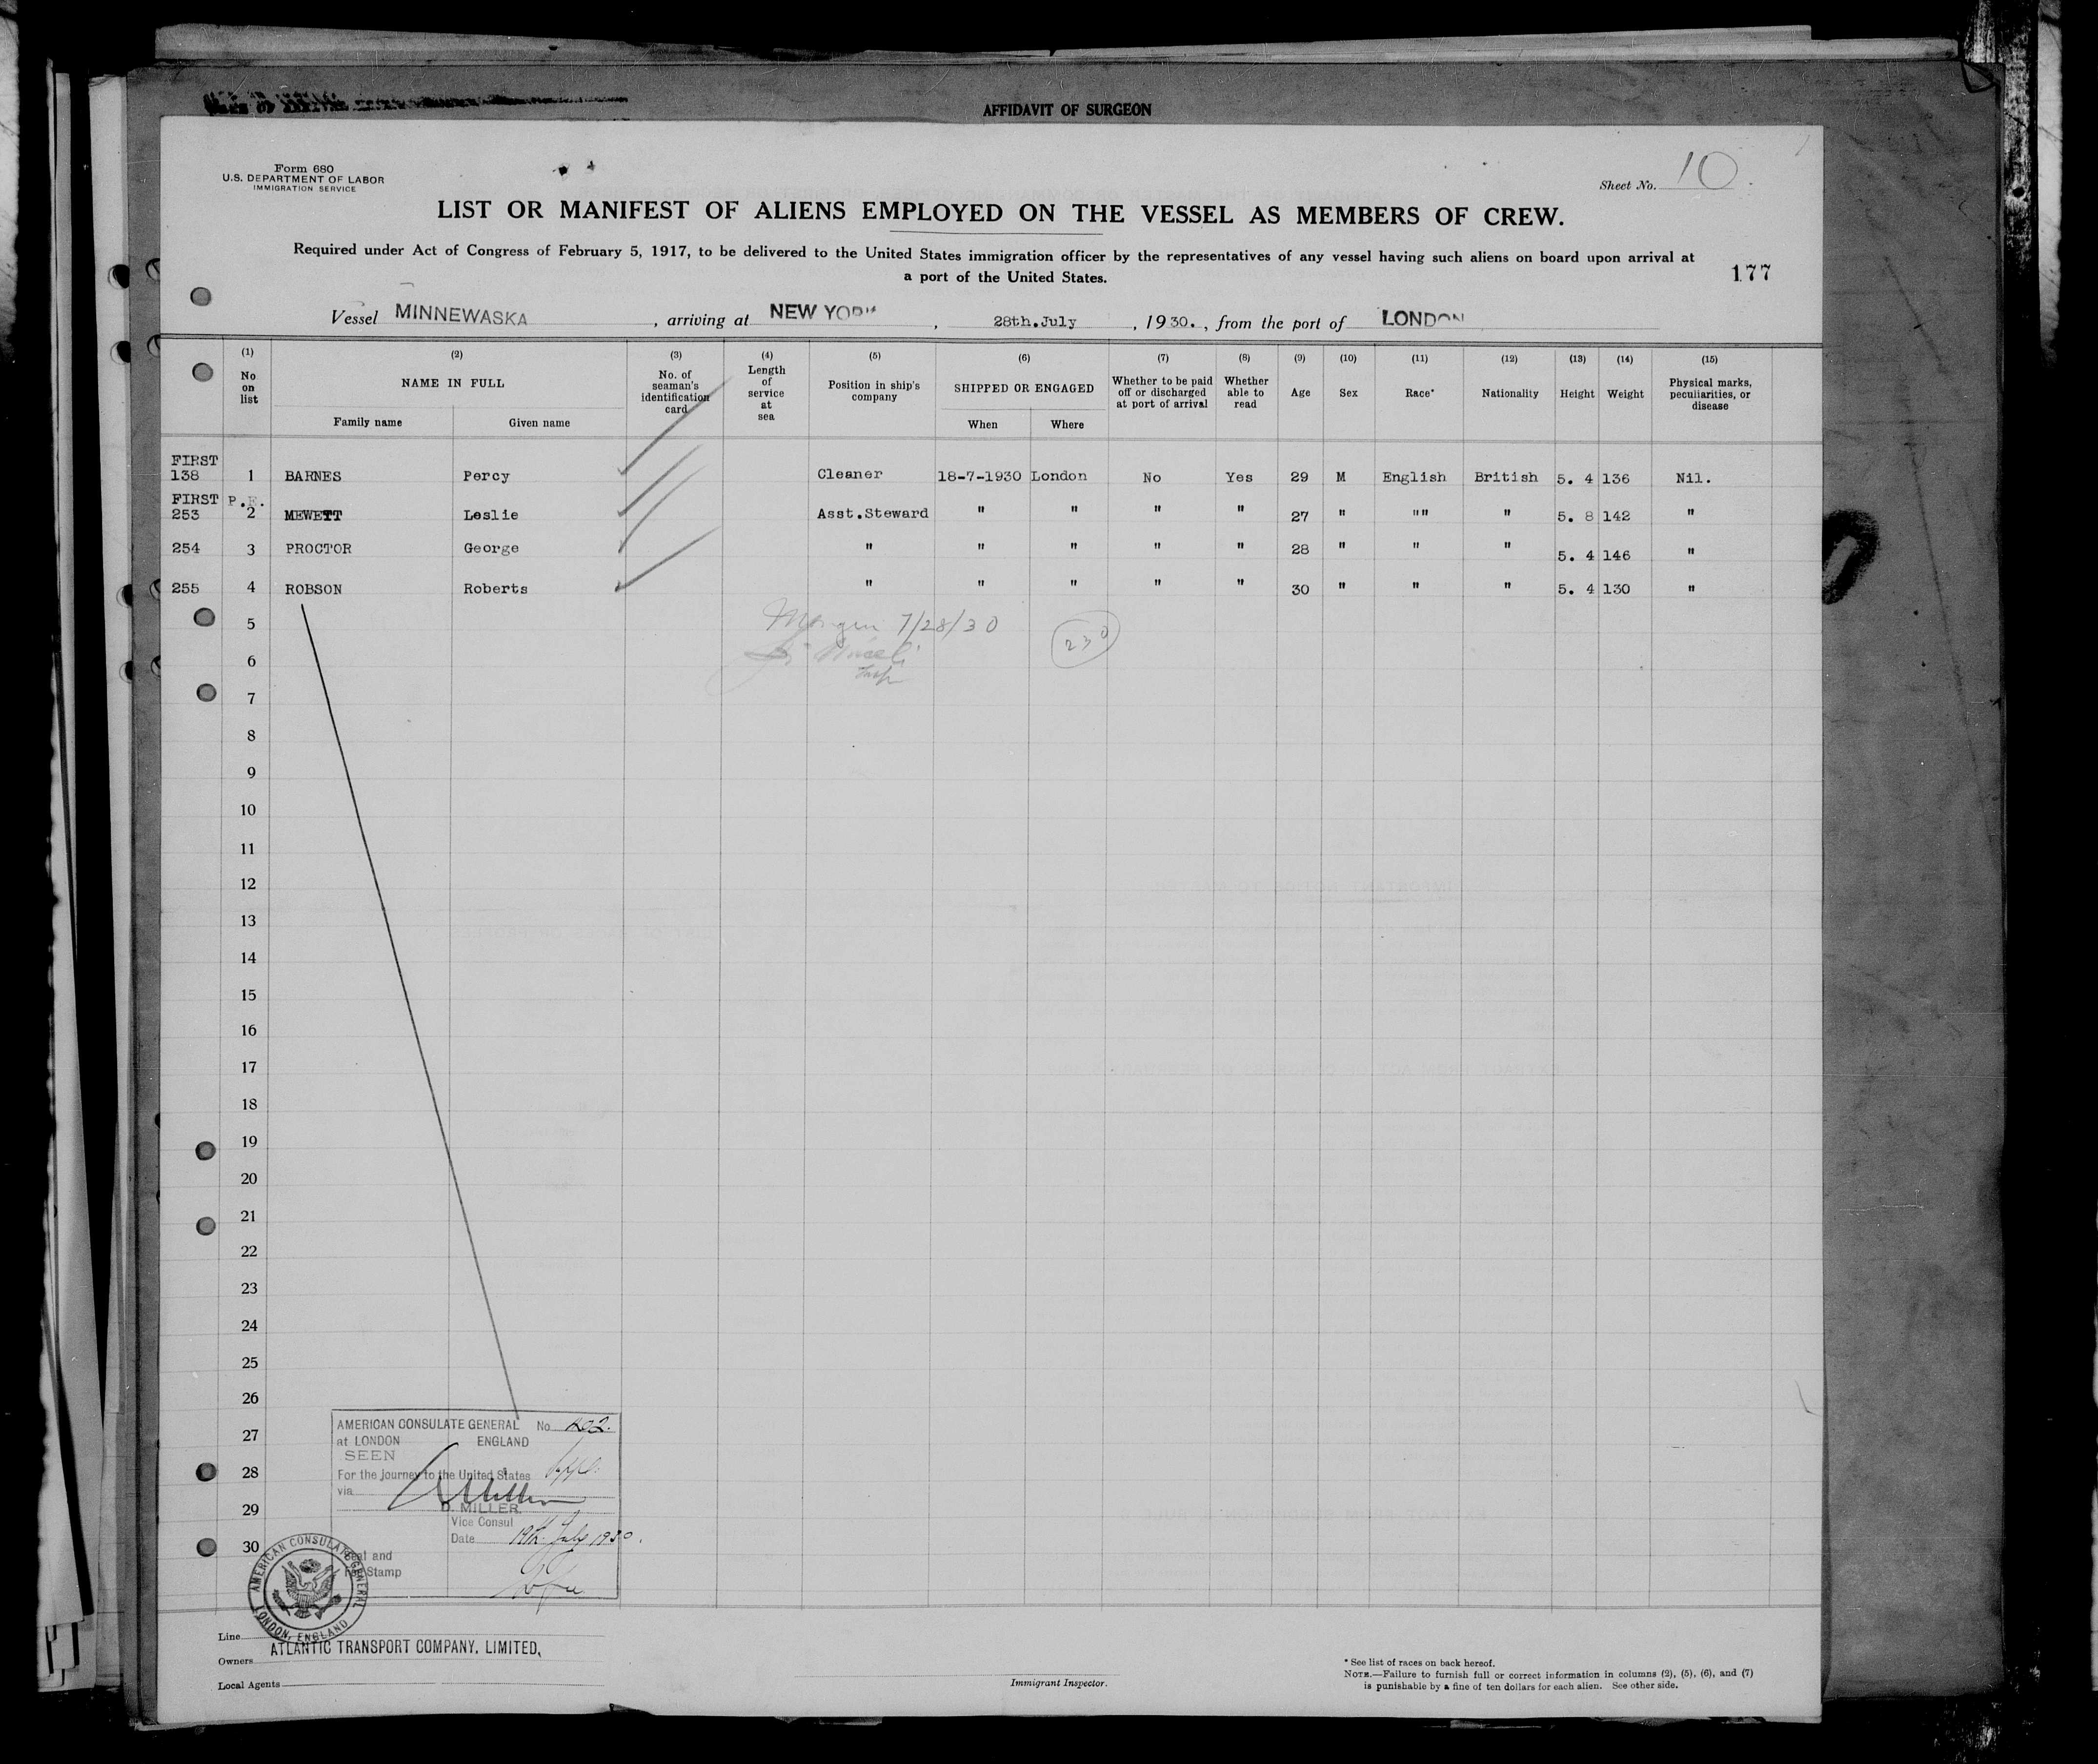 AFFIDAVIT OF SURGEON
Form 680
U.S. DEPARTMENT OF LABOR
IMMIGRATION SERVICE
Sheet No. 10
LIST OR MANIFEST OF ALIENS EMPLOYED ON THE VESSEL AS MEMBERS OF CREW.
Required under Act of Congress of February 5, 1917, to be delivered to the United States immigration officer by the representatives of any vessel having such aliens on board upon arrival at
a port of the United States.
177
Vessel MINNEWASKA , arriving at NEW YORK , 28th.July , 1930. , from the port of LONDON
(1) (2) (3) (4) (5) (6) (7) (8) (9) (10) (11) (12) (13) (14) (15)
No on list NAME IN FULL No. of seaman's identification card Length of service at sea Position in ship's company SHIPPED OR ENGAGED Whether to be paid off or discharged at port of arrival Whether able to read Age Sex Race* Nationality Height Weight Physical marks, peculiarities, or disease
Family name Given name When Where
FIRST
138 1 BARNES Percy Cleaner 18-7-1930 London No Yes 29 M English British 5. 4 136 Nil.
FIRST P.E.
253 2 MEWETT Leslie Asst.Steward " " " " 27 " "" " 5. 8 142 "
254 3 PROCTOR George " " " " " 28 " " " 5. 4 146 "
255 4 ROBSON Roberts " " " " " 30 " " " 5. 4 130 "
5 7/28/30 230
6
7
8
9
10
11
12
13
14
15
16
17
18
19
20
21
22
23
24
25
26
27
28
29
30
AMERICAN CONSULATE GENERAL No 202.
at LONDON ENGLAND
SEEN
For the journey to the United States
via
D. MILLER.
Vice Consul
Date 19th July 1930.
Seal and
Fee Stamp
AMERICAN CONSULATE GENERAL
LONDON, ENGLAND
Line
Owners ATLANTIC TRANSPORT COMPANY, LIMITED,
Local Agents
Immigrant Inspector.
* See list of races on back hereof.
NOTE.—Failure to furnish full or correct information in columns (2), (5), (6), and (7)
is punishable by a fine of ten dollars for each alien. See other side.